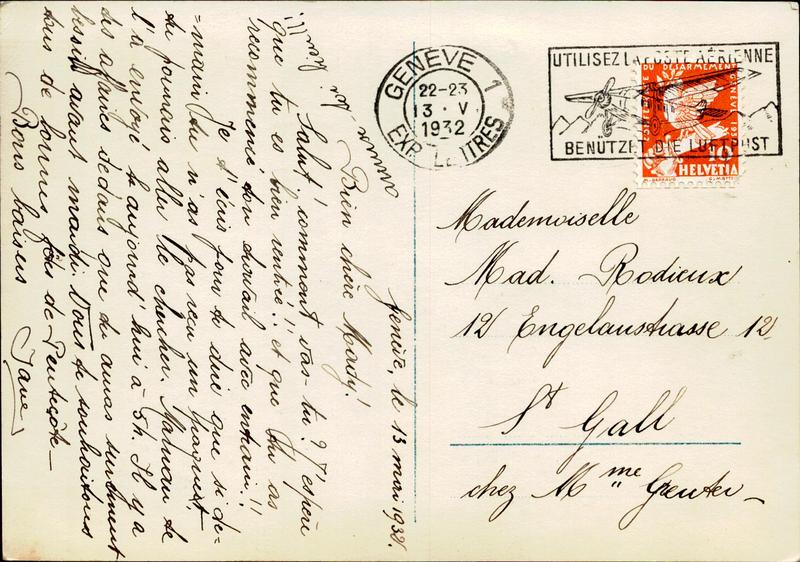 Genève, le 13 mai 1932.
Bien chère Mady!
Salut! comment vas-tu? J'espère
que tu es bien rentrée!! et que tu as
recommencé ton travail avec entrain!!
Je t'écris pour te dire que si de-
=main tu n'as pas reçu un paquet
tu pourrais aller le chercher. Maman te
l'a envoyé aujourd'hui à 5h. Il y a
des affaires dedans que tu auras sûrement
besoin avant mardi. Nous te souhaitons
tous de bonnes fêtes de Pentecôte-
Bons baisers
GENÈVE 1
22-23
13. V.
1932
EXP. LETTRES
UTILISEZ LA POSTE AÉRIENNE
BENÜTZET DIE LUFTPOST
DU DÉSARMEMENT
GENÈVE 1932
10
HELVETIA
Mademoiselle
Mad. Rodieux
12 Engelaustrasse 12
St Gall
chez Mme Greuter-